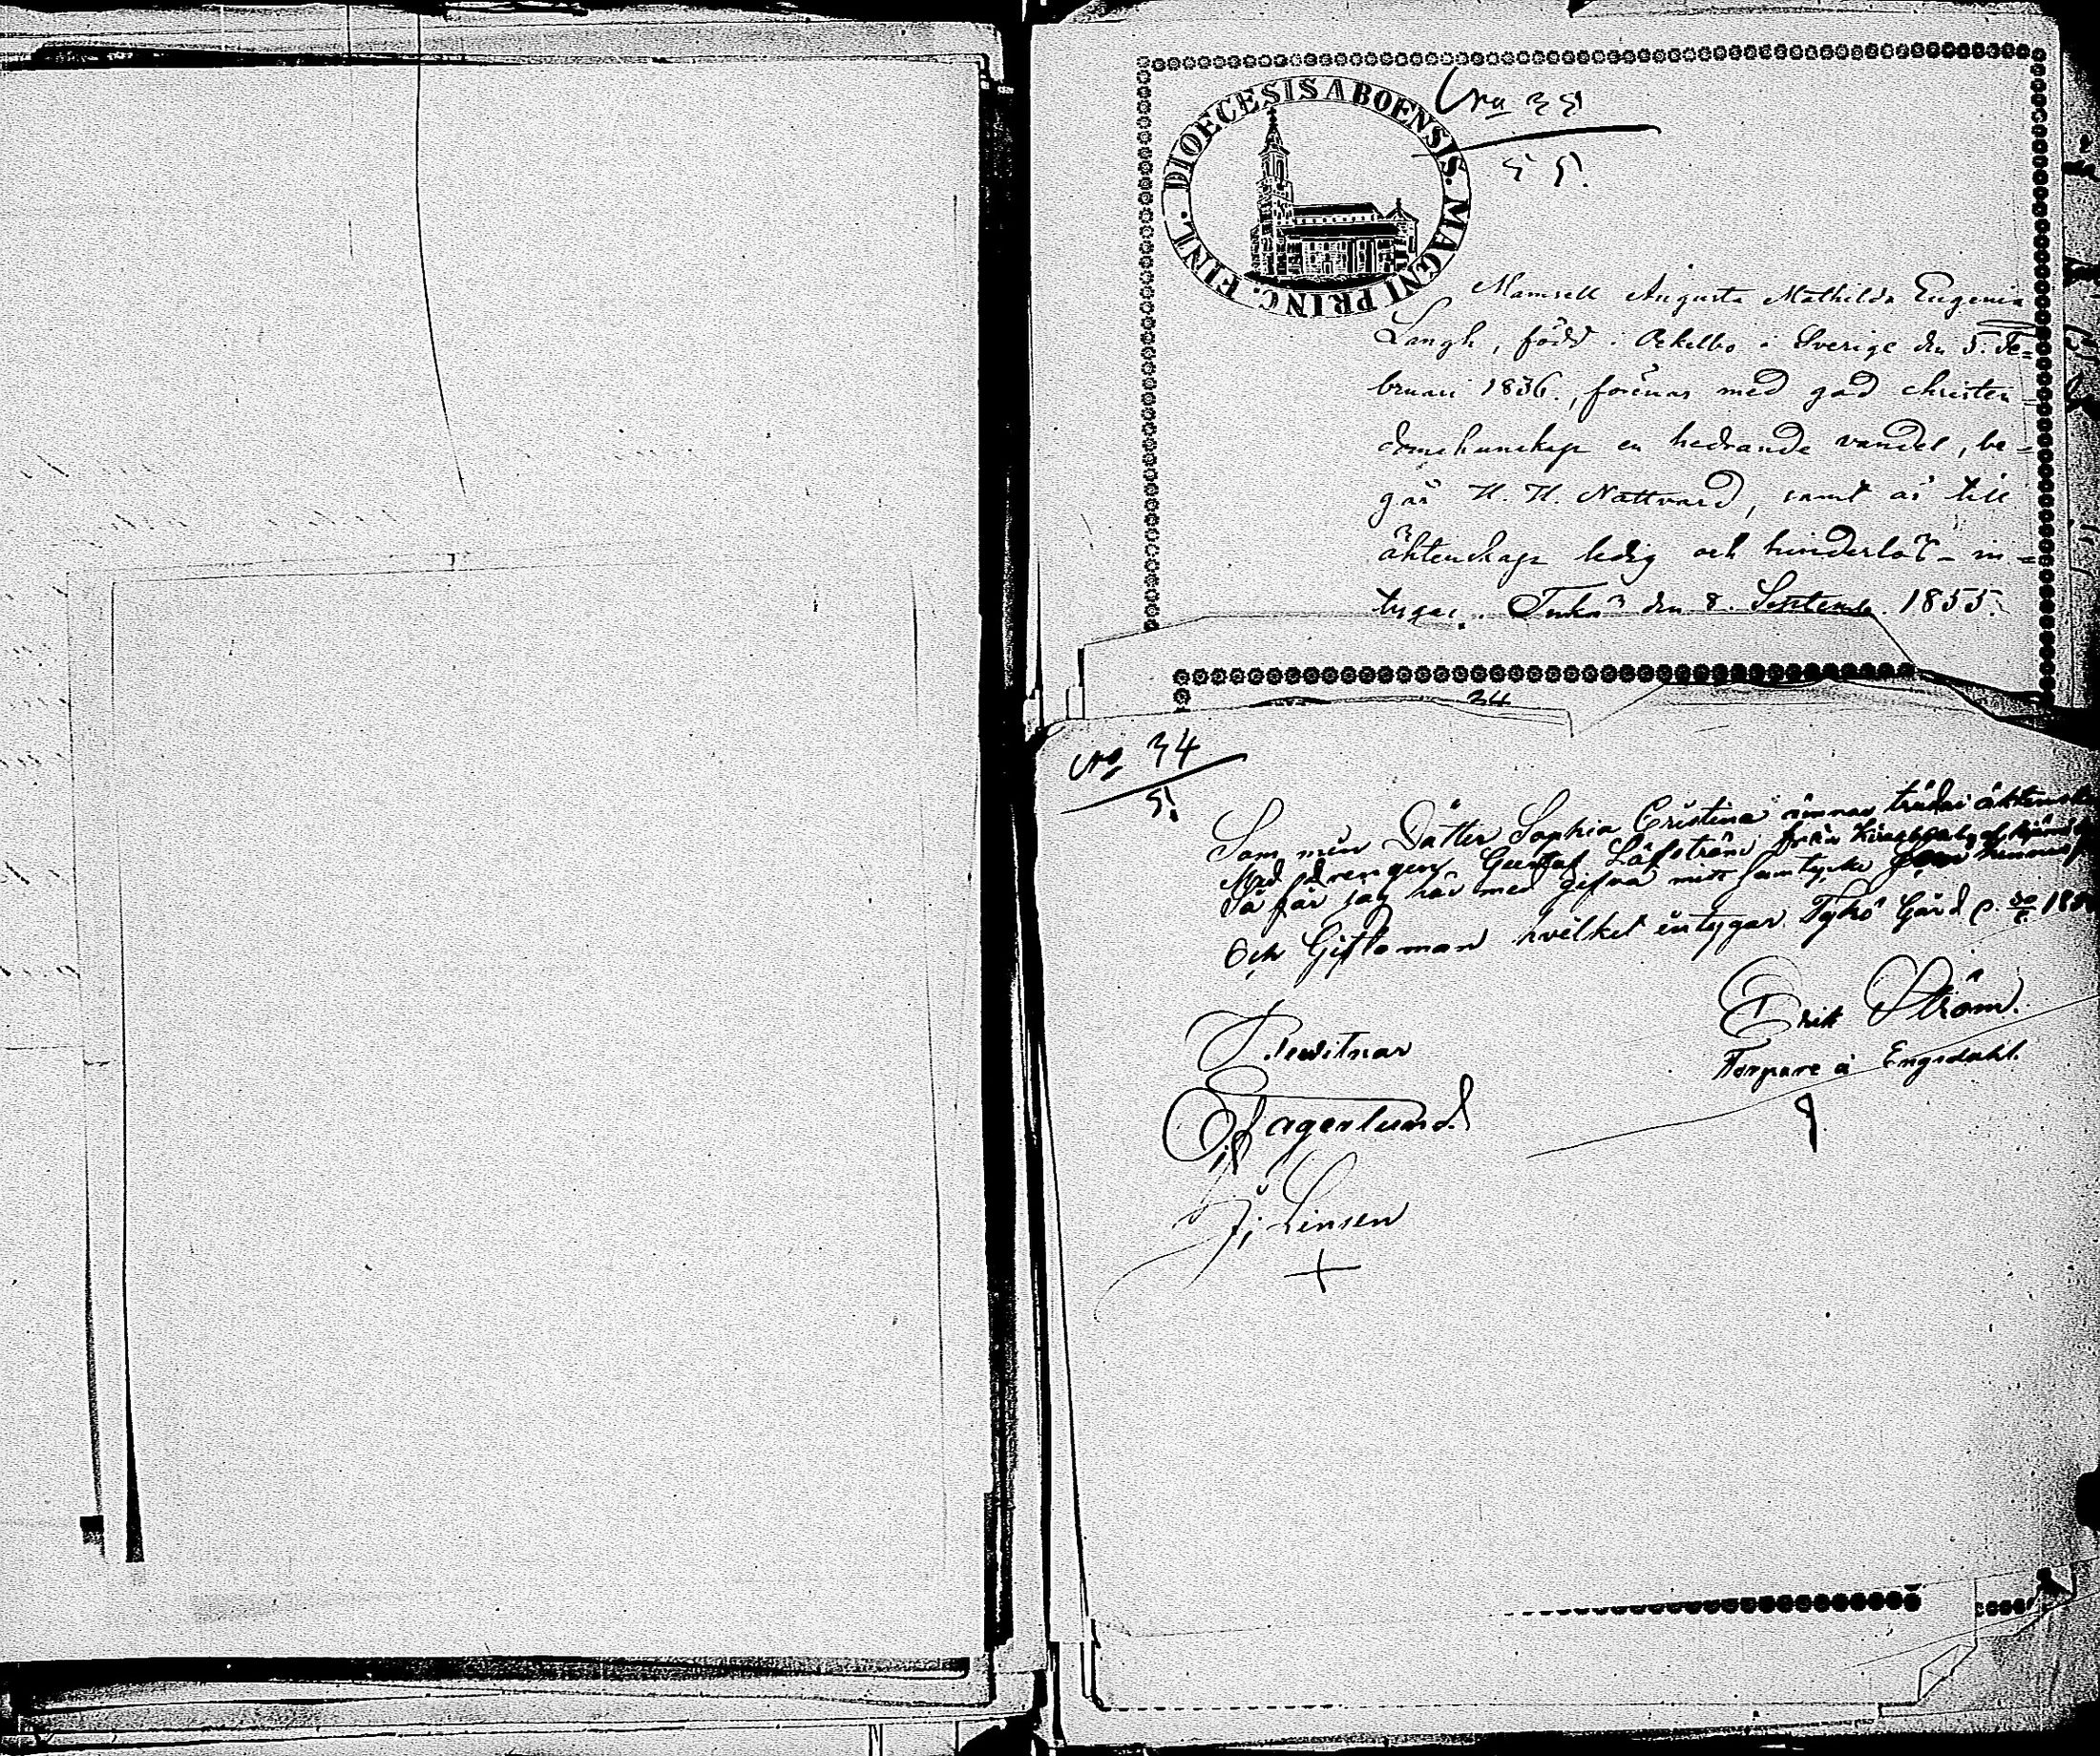 DIOECESIS ABOENSIS. MAGNI PRINC. FINL.
No 35
55.
Mamsell Augusta Mathilda Eugenia
Langh, född i Ockelbo i Sverige den 5. Fe=
bruari 1836., förenar med god christen=
domskunskap en hedrande vandel, be=
går H. H. Nattvard, samt är till
äktenskap ledig och hinderlös - in=
tygar. Tykö den 8. Septemb. 1855.
34
No 34
5.
Som min Dotter Sophia Cristina ämnar träda i äktenska
Med Drengen Gustaf Löfström från
Så får jag här med gifva mitt samtycke som hennes
Och Giftoman hvilket intygar. Tykö Gård d. 30
Erik Ström.
Torpare å Engsdahl.
Bewitnar
Fagerlund
J: Linsen